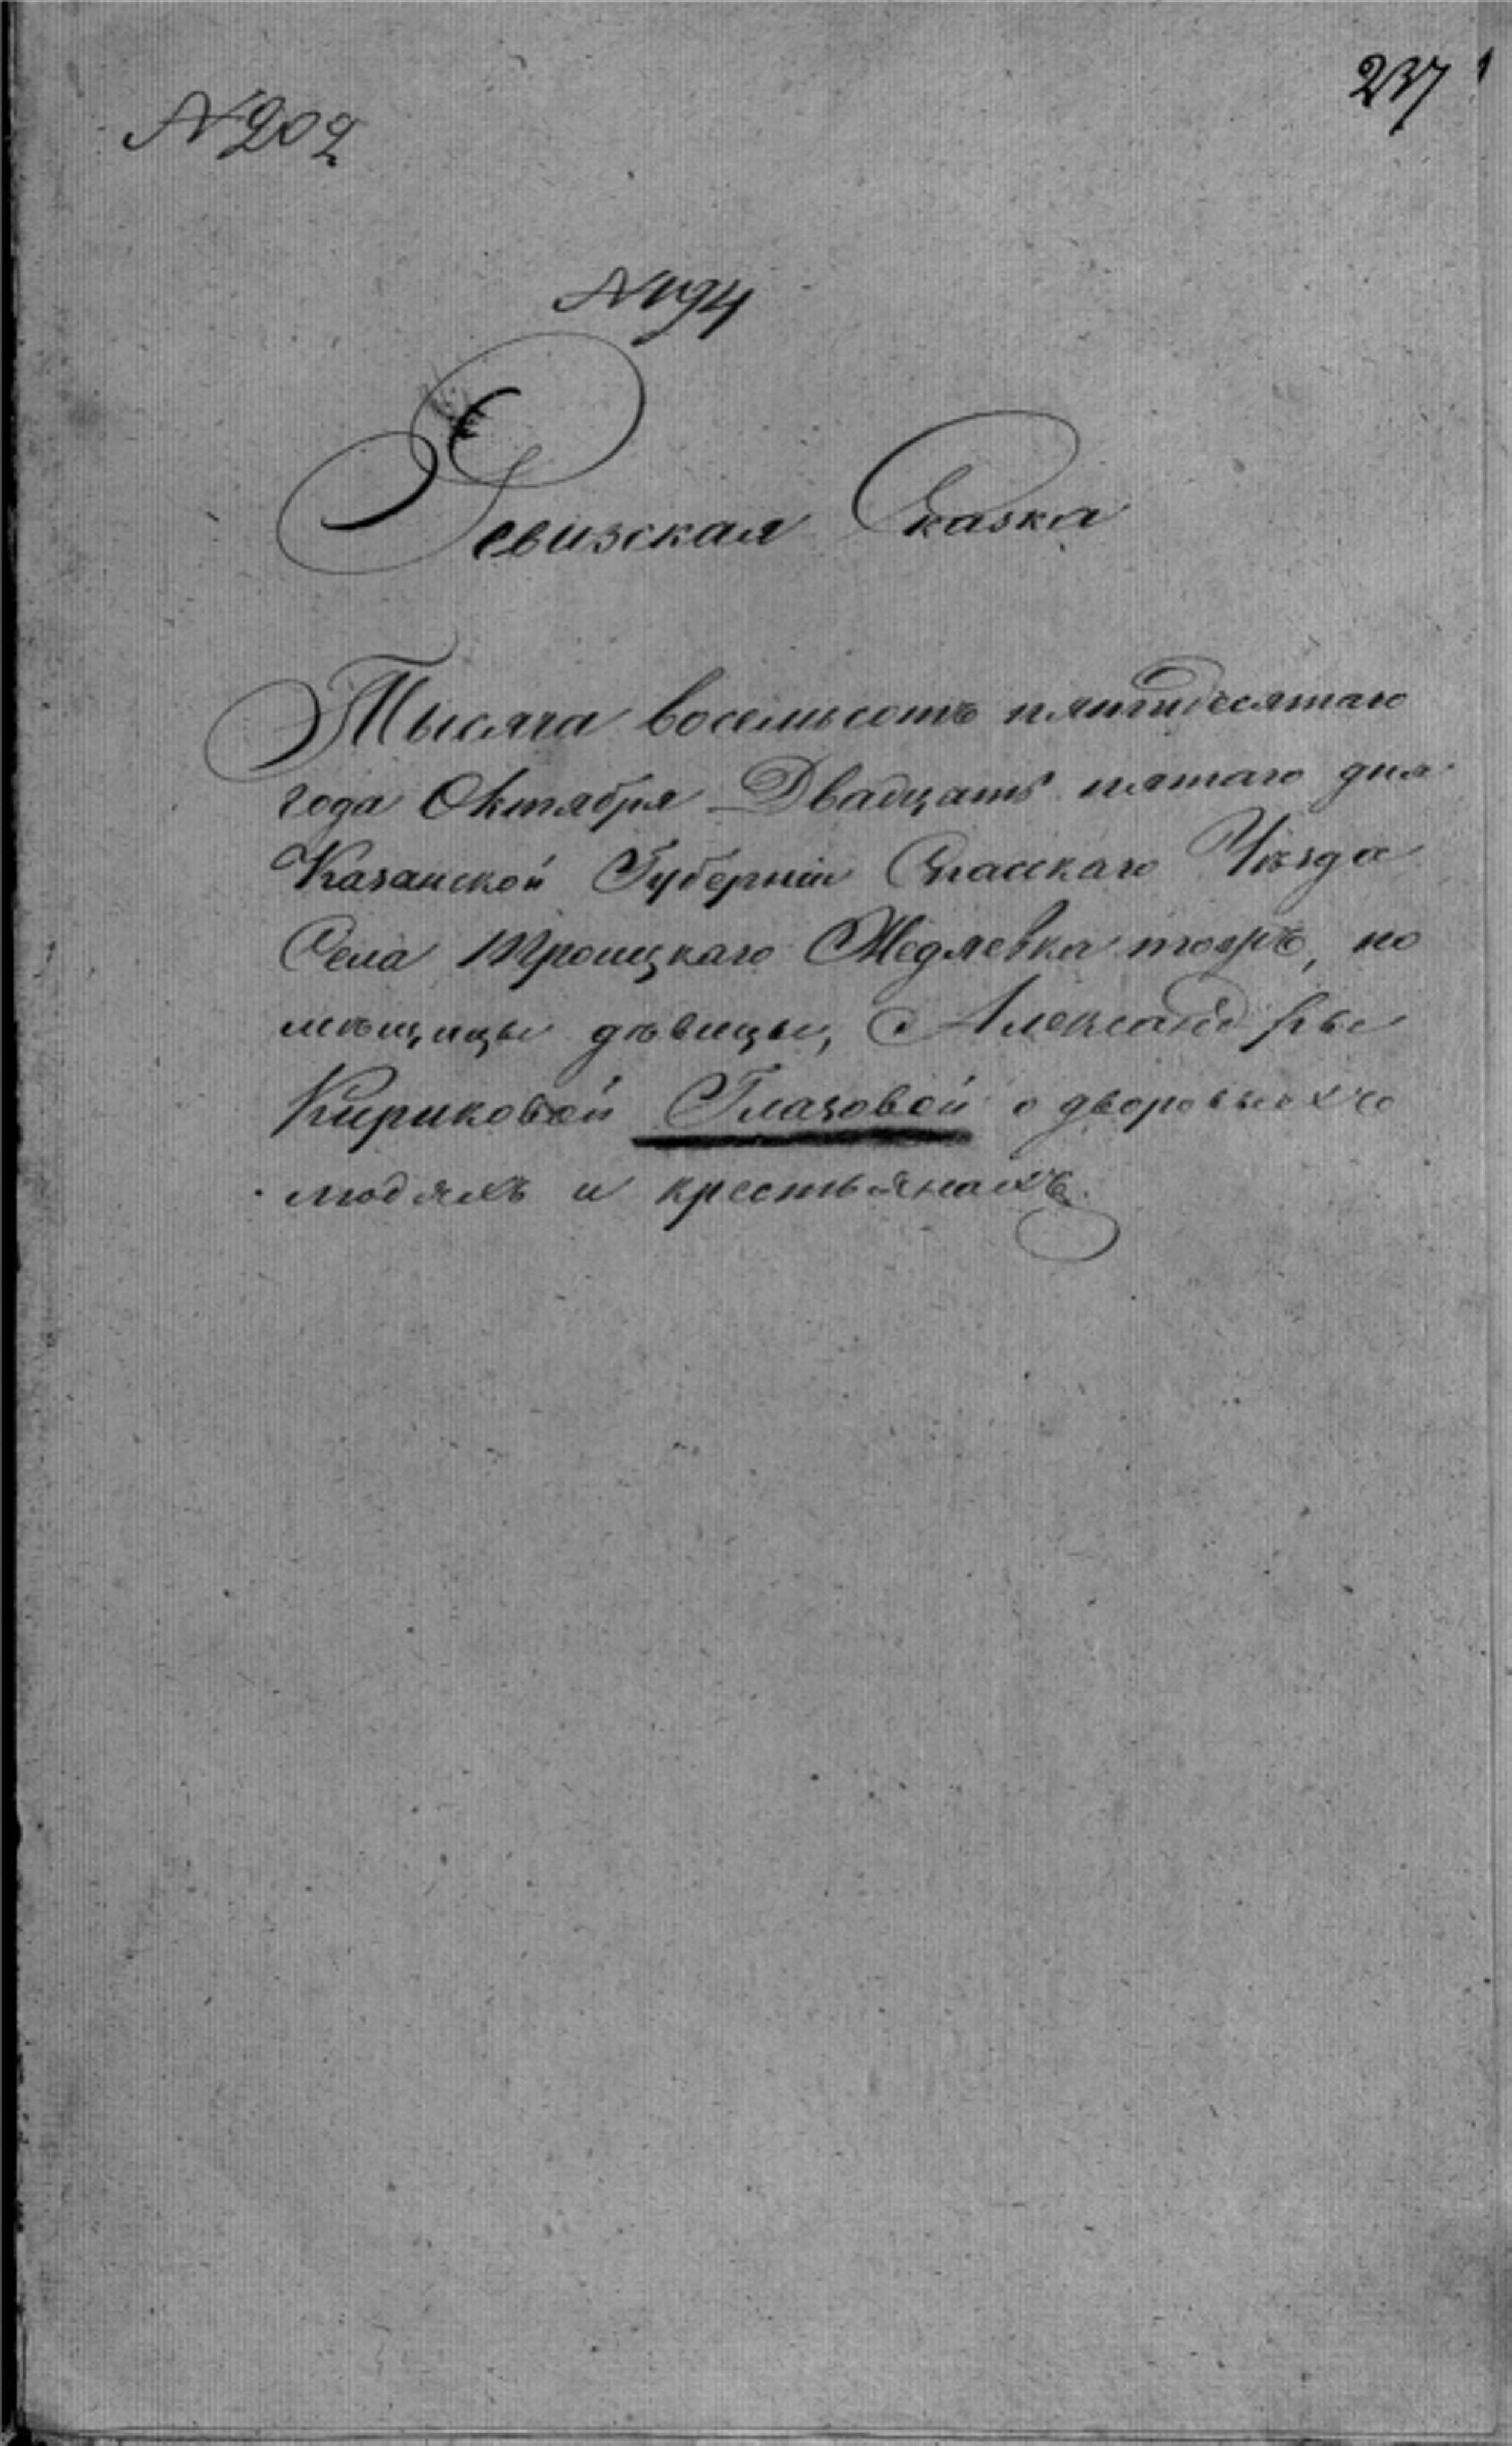 № 202
237
№ 194
Ревизская Сказка
Тысяча восемьсотъ пятидесятаго
года Октября Двадцать пятаго дня
Казанской Губерніи Спасскаго Уѣзда
Села Троицкаго тожъ, по
мѣщицы дѣвицы, Александры
Кириковой Глазовой о дворовыхъ
людяхъ и крестьянахъ